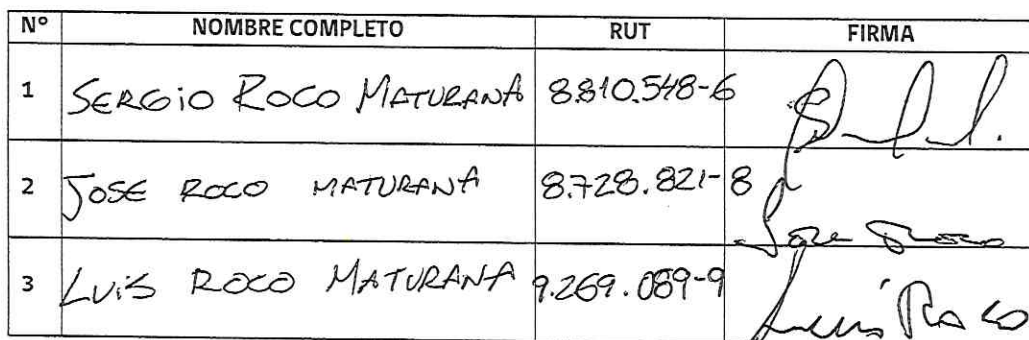 N° NOMBRE COMPLETO RUT FIRMA
1 SERGIO ROCO MATURANA 8.810.548-6
2 JOSE ROCO MATURANA 8.728.821-8 Jose Roco
3 LUIS ROCO MATURANA 9.269.089-9 Luis Roco